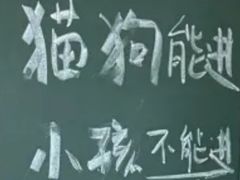 猫狗能进
小孩不能进